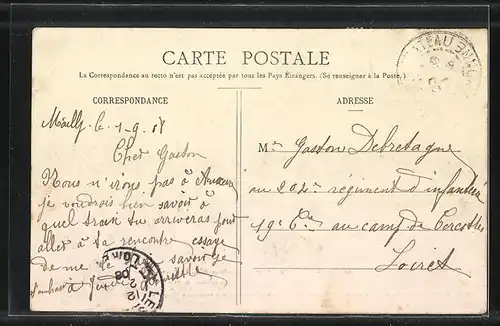 CARTE POSTALE
La Correspondance au recto n'est pas acceptée par tous les Pays Étrangers. (Se renseigner à la Poste.)
CORRESPONDANCE
Mailly le 1-9-08
Cher Gaston
Nous n'irons pas à
je voudrais bien savoir à
quel train tu arriveras pour
aller à ta rencontre essaye
de me le savoir je
t'embrasse
ADRESSE
Mr Gaston Debretagne
au 202me régiment d'infanterie
19e Cie au camp de Cercottes
Loiret